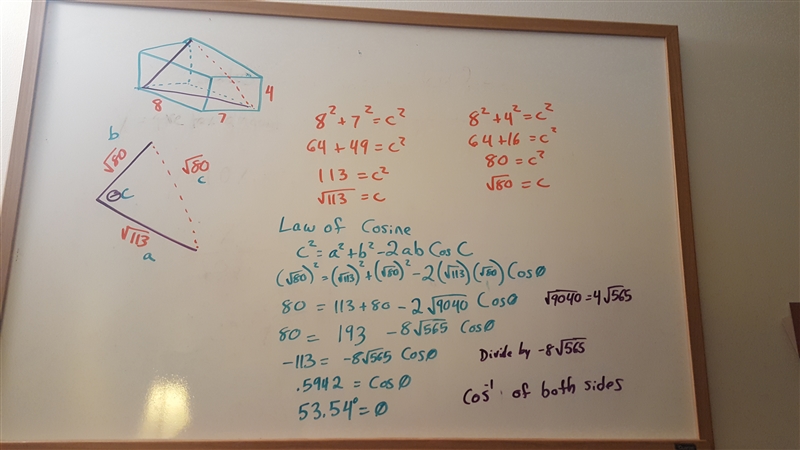 4
8
7
b
√80
√80
c
C
√113
a
8² + 7² = c²
64 + 49 = c²
113 = c²
√113 = c
8² + 4² = c²
64 + 16 = c²
80 = c²
√80 = c
Law of Cosine
c² = a² + b² - 2ab Cos C
(√80)² = (√113)² + (√80)² - 2(√113)(√80) Cos θ
80 = 113 + 80 - 2√9040 Cos θ √9040 = 4√565
80 = 193 - 8√565 Cos θ
-113 = -8√565 Cos θ Divide by -8√565
.5942 = Cos θ Cos⁻¹ of both sides
53.54° = θ